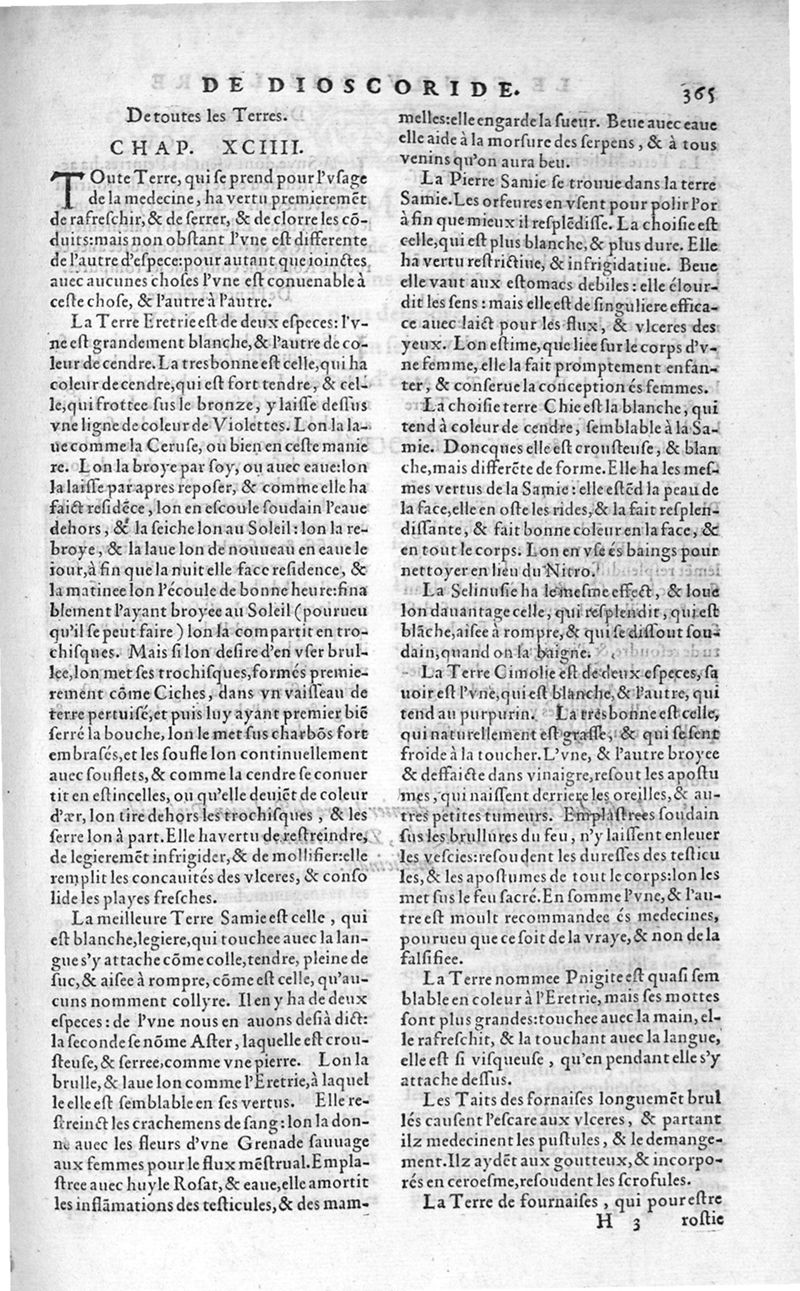 DE DIOSCORIDE. 365
De toutes les Terres.
CHAP. XCIIII.
TOute Terre, qui se prend pour l'vsage
de la medecine, ha vertu premieremẽt
de rafreschir, & de serrer, & de clorre les cõ-
duits: mais non obstant l'vne est differente
de l'autre d'espece: pour autant que ioinctes
auec aucunes choses l'vne est conuenable à
ceste chose, & l'autre à l'autre.
La Terre Eretrie est de deux especes: l'v-
ne est grandement blanche, & l'autre de co-
leur de cendre. La tresbonne est celle, qui ha
coleur de cendre, qui est fort tendre, & cel-
le, qui frottee sus le bronze, y laisse dessus
vne ligne de coleur de Violettes. Lon la la-
ue comme la Ceruse, ou bien en ceste manie
re. Lon la broye par soy, ou auec eaue: lon
la laisse par apres reposer, & comme elle ha
faict residẽce, lon en escoule soudain l'eaue
dehors, & la seiche lon au Soleil: lon la re-
broye, & la laue lon de nouueau en eaue le
iour, à fin que la nuit elle face residence, &
la matinee lon l'écoule de bonne heure: fina
blement l'ayant broyee au Soleil (pourueu
qu'il se peut faire) lon la compartit en tro-
chisques. Mais si lon desire d'en vser brul-
lee, lon met ses trochisques, formés premie-
rement cõme Ciches, dans vn vaisseau de
terre pertuisé, et puis luy ayant premier biẽ
serré la bouche, lon le met sus charbõs fort
embrasés, et les soufle lon continuellement
auec souflets, & comme la cendre se conuer
tit en estincelles, ou qu'elle deuiẽt de coleur
d'ær, lon tire dehors les trochisques, & les
serre lon à part. Elle ha vertu de restreindre,
de legieremẽt infrigider, & de mollifier: elle
remplit les concauités des vlceres, & conso
lide les playes fresches.
La meilleure Terre Samie est celle, qui
est blanche, legiere, qui touchee auec la lan-
gue s'y attache cõme colle, tendre, pleine de
suc, & aisee à rompre, cõme est celle, qu'au-
cuns nomment collyre. Il en y ha de deux
especes: de l'vne nous en auons desià dict:
la seconde se nõme Aster, laquelle est crou-
steuse, & serree, comme vne pierre. Lon la
brulle, & laue lon comme l'Eretrie, à laquel
le elle est semblable en ses vertus. Elle re-
streinct les crachemens de sang: lon la don-
ne auec les fleurs d'vne Grenade sauuage
aux femmes pour le flux mẽstrual. Empla-
stree auec huyle Rosat, & eaue, elle amortit
les inflãmations des testicules, & des mam-
melles: elle engarde la sueur. Beue auec eaue
elle aide à la morsure des serpens, & à tous
venins qu'on aura beu.
La Pierre Samie se trouue dans la terre
Samie. Les orfeures en vsent pour polir l'or
à fin que mieux il resplẽdisse. La choisie est
celle, qui est plus blanche, & plus dure. Elle
ha vertu restrictiue, & infrigidatiue. Beue
elle vaut aux estomacs debiles: elle élour-
dit les sens: mais elle est de singuliere effica-
ce auec laict pour les flux, & vlceres des
yeux. Lon estime, que liee sur le corps d'v-
ne femme, elle la fait promptement enfan-
ter, & conserue la conception és femmes.
La choisie terre Chie est la blanche, qui
tend à coleur de cendre, semblable à la Sa-
mie. Doncques elle est crousteuse, & blan
che, mais differẽte de forme. Elle ha les mes-
mes vertus de la Samie: elle estẽd la peau de
la face, elle en oste les rides, & la fait resplen-
dissante, & fait bonne coleur en la face, &
en tout le corps. Lon en vse és baings pour
nettoyer en lieu du Nitro.
La Selinusie ha le mesme effect, & loue
lon dauantage celle, qui resplendit, qui est
blãche, aisee à rompre, & qui se dissout sou-
dain, quand on la baigne.
La Terre Cimolie est de deux especes, sa
uoir est l'vne, qui est blanche, & l'autre, qui
tend au purpurin. La tresbonne est celle,
qui naturellement est grasse, & qui se sent
froide à la toucher. L'vne, & l'autre broyee
& deffaicte dans vinaigre, resout les apostu
mes, qui naissent derriere les oreilles, & au-
tres petites tumeurs. Emplastrees soudain
sus les brullures du feu, n'y laissent enleuer
les vescies: resoudent les duresses des testicu
les, & les apostumes de tout le corps: lon les
met sus le feu sacré. En somme l'vne, & l'au-
tre est moult recommandee és medecines,
pourueu que ce soit de la vraye, & non de la
falsifiee.
La Terre nommee Pnigite est quasi sem
blable en coleur à l'Eretrie, mais ses mottes
sont plus grandes: touchee auec la main, el-
le rafreschit, & la touchant auec la langue,
elle est si visqueuse, qu'en pendant elle s'y
attache dessus.
Les Taits des fornaises longuemẽt brul
lés causent l'escare aux vlceres, & partant
ilz medecinent les pustules, & le demange-
ment. Ilz aydẽt aux goutteux, & incorpo-
rés en ceroesme, resoudent les scrofules.
La Terre de fournaises, qui pour estre
H 3 rostie